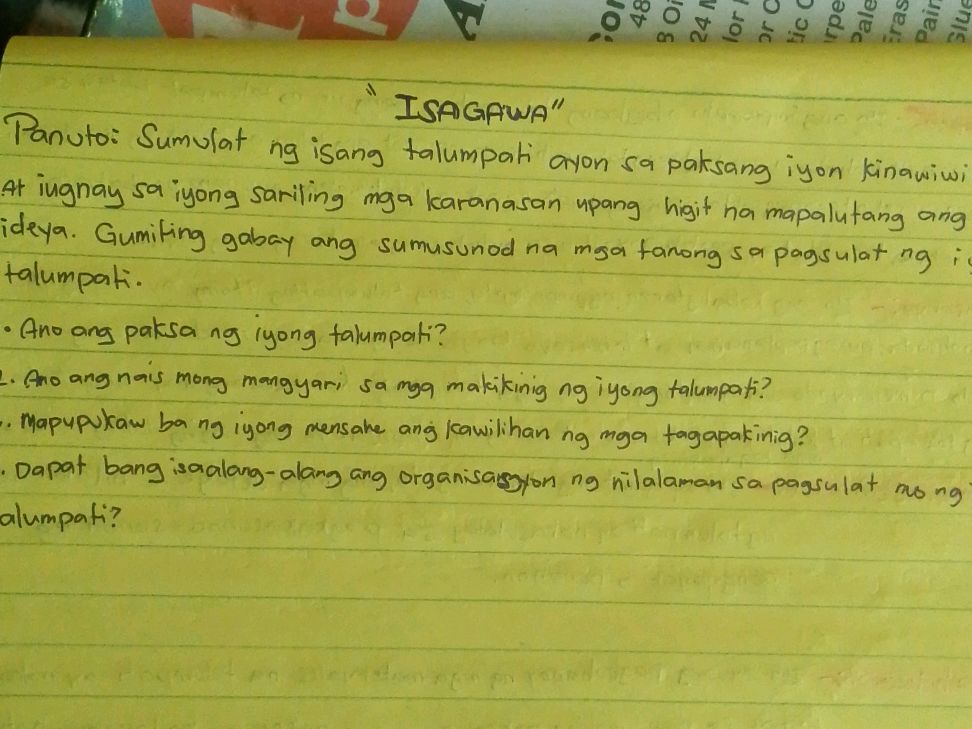 "ISAGAWA"
Panuto: Sumulat ng isang talumpati ayon sa paksang iyon kinawiwi
At iugnay sa iyong sariling mga karanasan upang higit na mapalutang ang
ideya. Gumiting gabay ang sumusunod na mga tanong sa pagsulat ng i
talumpati.
. Ano ang paksa ng iyong talumpati?
2. Ano ang nais mong mangyari sa mga makikinig ng iyong talumpati?
. Mapupukaw ba ng iyong mensahe ang kawilihan ng mga tagapakinig?
. Dapat bang isaalang-alang ang organisasyon ng nilalaman sa pagsulat mo ng
alumpati?
48
8 Oi
24 M
lor
or C
tic C
rpe
Pale
Eras
Pain
Glue